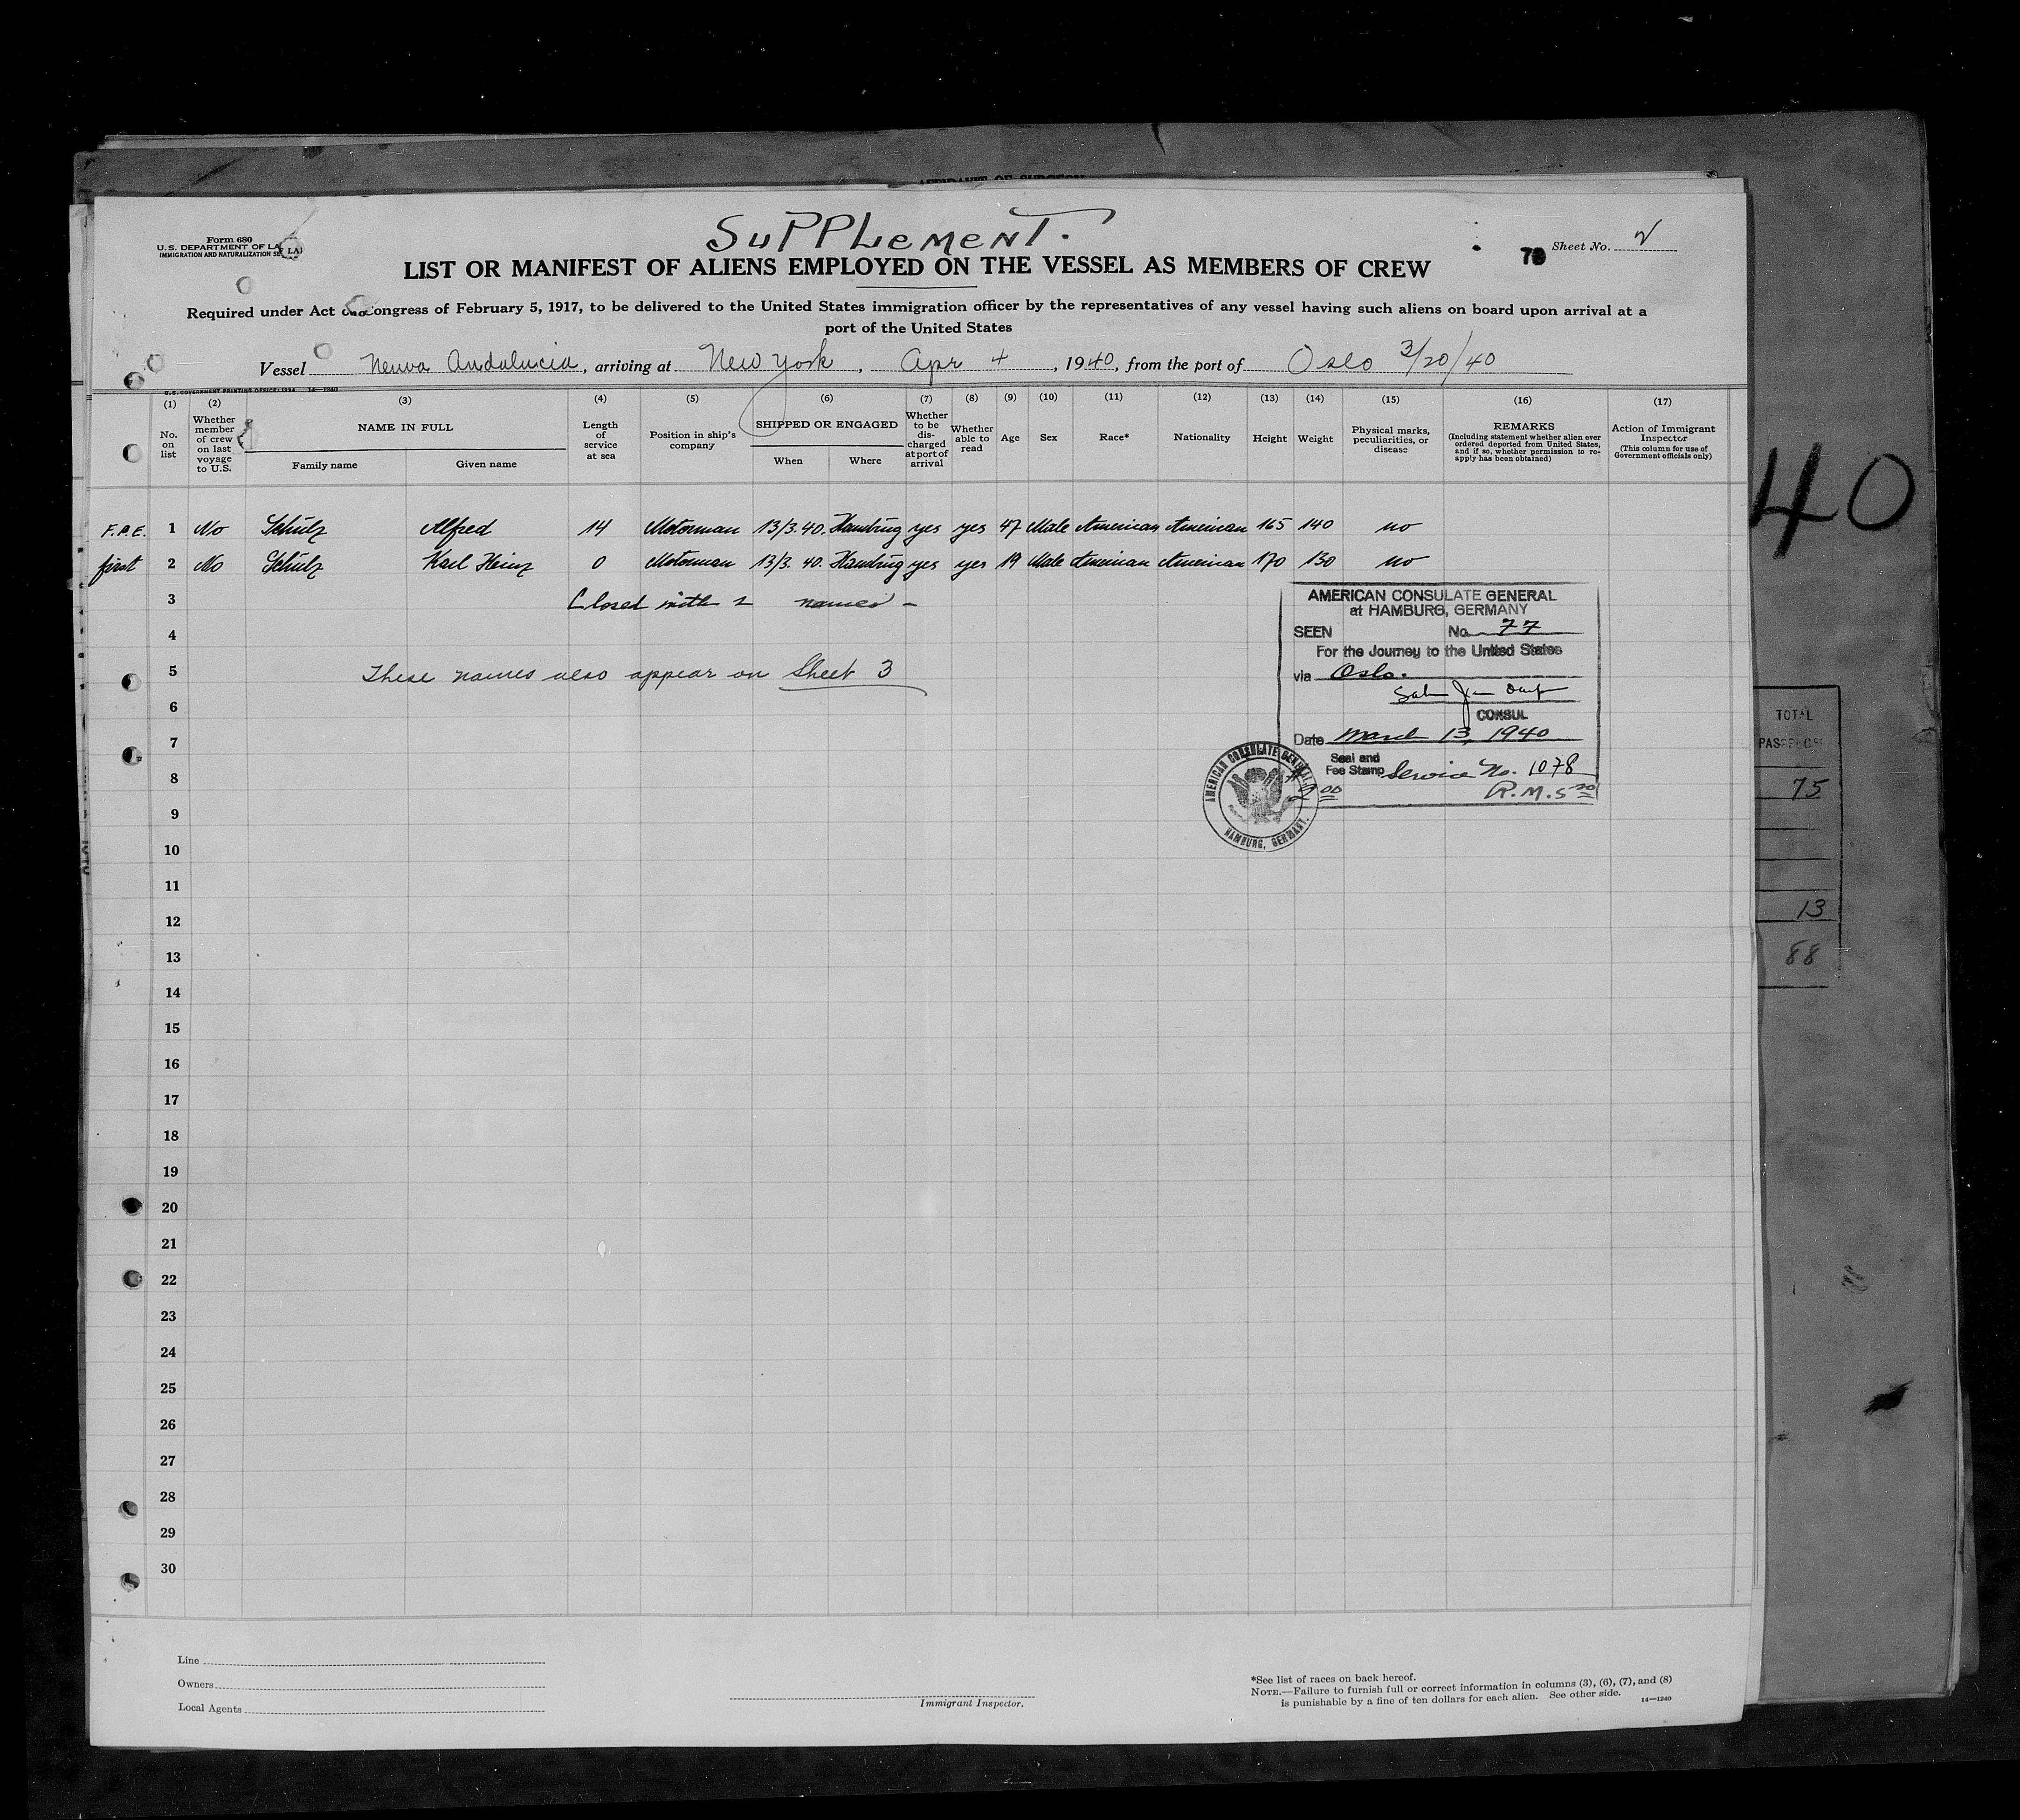 AFFIDAVIT OF SURGEON
SUPPLEMENT.
Form 680
U.S. DEPARTMENT OF LA
IMMIGRATION AND NATURALIZATION SE
78 Sheet No. 2
LIST OR MANIFEST OF ALIENS EMPLOYED ON THE VESSEL AS MEMBERS OF CREW
Required under Act Congress of February 5, 1917, to be delivered to the United States immigration officer by the representatives of any vessel having such aliens on board upon arrival at a
port of the United States
Vessel Neuva Andalucia, arriving at New York, Apr 4, 1940, from the port of Oslo 3/20/40
U.S. GOVERNMENT PRINTING OFFICE: 1934 14—1240
(1) (2) (3) (4) (5) (6) (7) (8) (9) (10) (11) (12) (13) (14) (15) (16) (17)
No. on list
Whether member of crew on last voyage to U.S.
NAME IN FULL
Family name Given name
Length of service at sea
Position in ship's company
SHIPPED OR ENGAGED
When Where
Whether to be discharged at port of arrival
Whether able to read
Age
Sex
Race*
Nationality
Height
Weight
Physical marks, peculiarities, or disease
REMARKS
(Including statement whether alien ever ordered deported from United States, and if so, whether permission to re-apply has been obtained)
Action of Immigrant Inspector
(This column for use of Government officials only)
F.P.E. 1 No Schulz Alfred 14 Motorman 13/3.40. Hamburg yes yes 47 Male American American 165 140 no
first 2 No Schulz Karl Heinz 0 Motorman 13/3. 40. Hamburg yes yes 19 Male American American 170 130 no
3 Closed with 2 names -
4
5 These names also appear on Sheet 3
6
7
8
9
10
11
12
13
14
15
16
17
18
19
20
21
22
23
24
25
26
27
28
29
30
AMERICAN CONSULATE GENERAL
at HAMBURG, GERMANY
SEEN No. 77
For the Journey to the United States
via Oslo.
CONSUL
Date March 13, 1940
Seal and
Fee Stamp Service No. 1078
R.M. 5
AMERICAN CONSULATE GENERAL
HAMBURG, GERMANY.
40
TOTAL
75
13
88
Line
Owners
Local Agents
Immigrant Inspector.
*See list of races on back hereof.
NOTE.—Failure to furnish full or correct information in columns (3), (6), (7), and (8)
is punishable by a fine of ten dollars for each alien. See other side. 14—1240